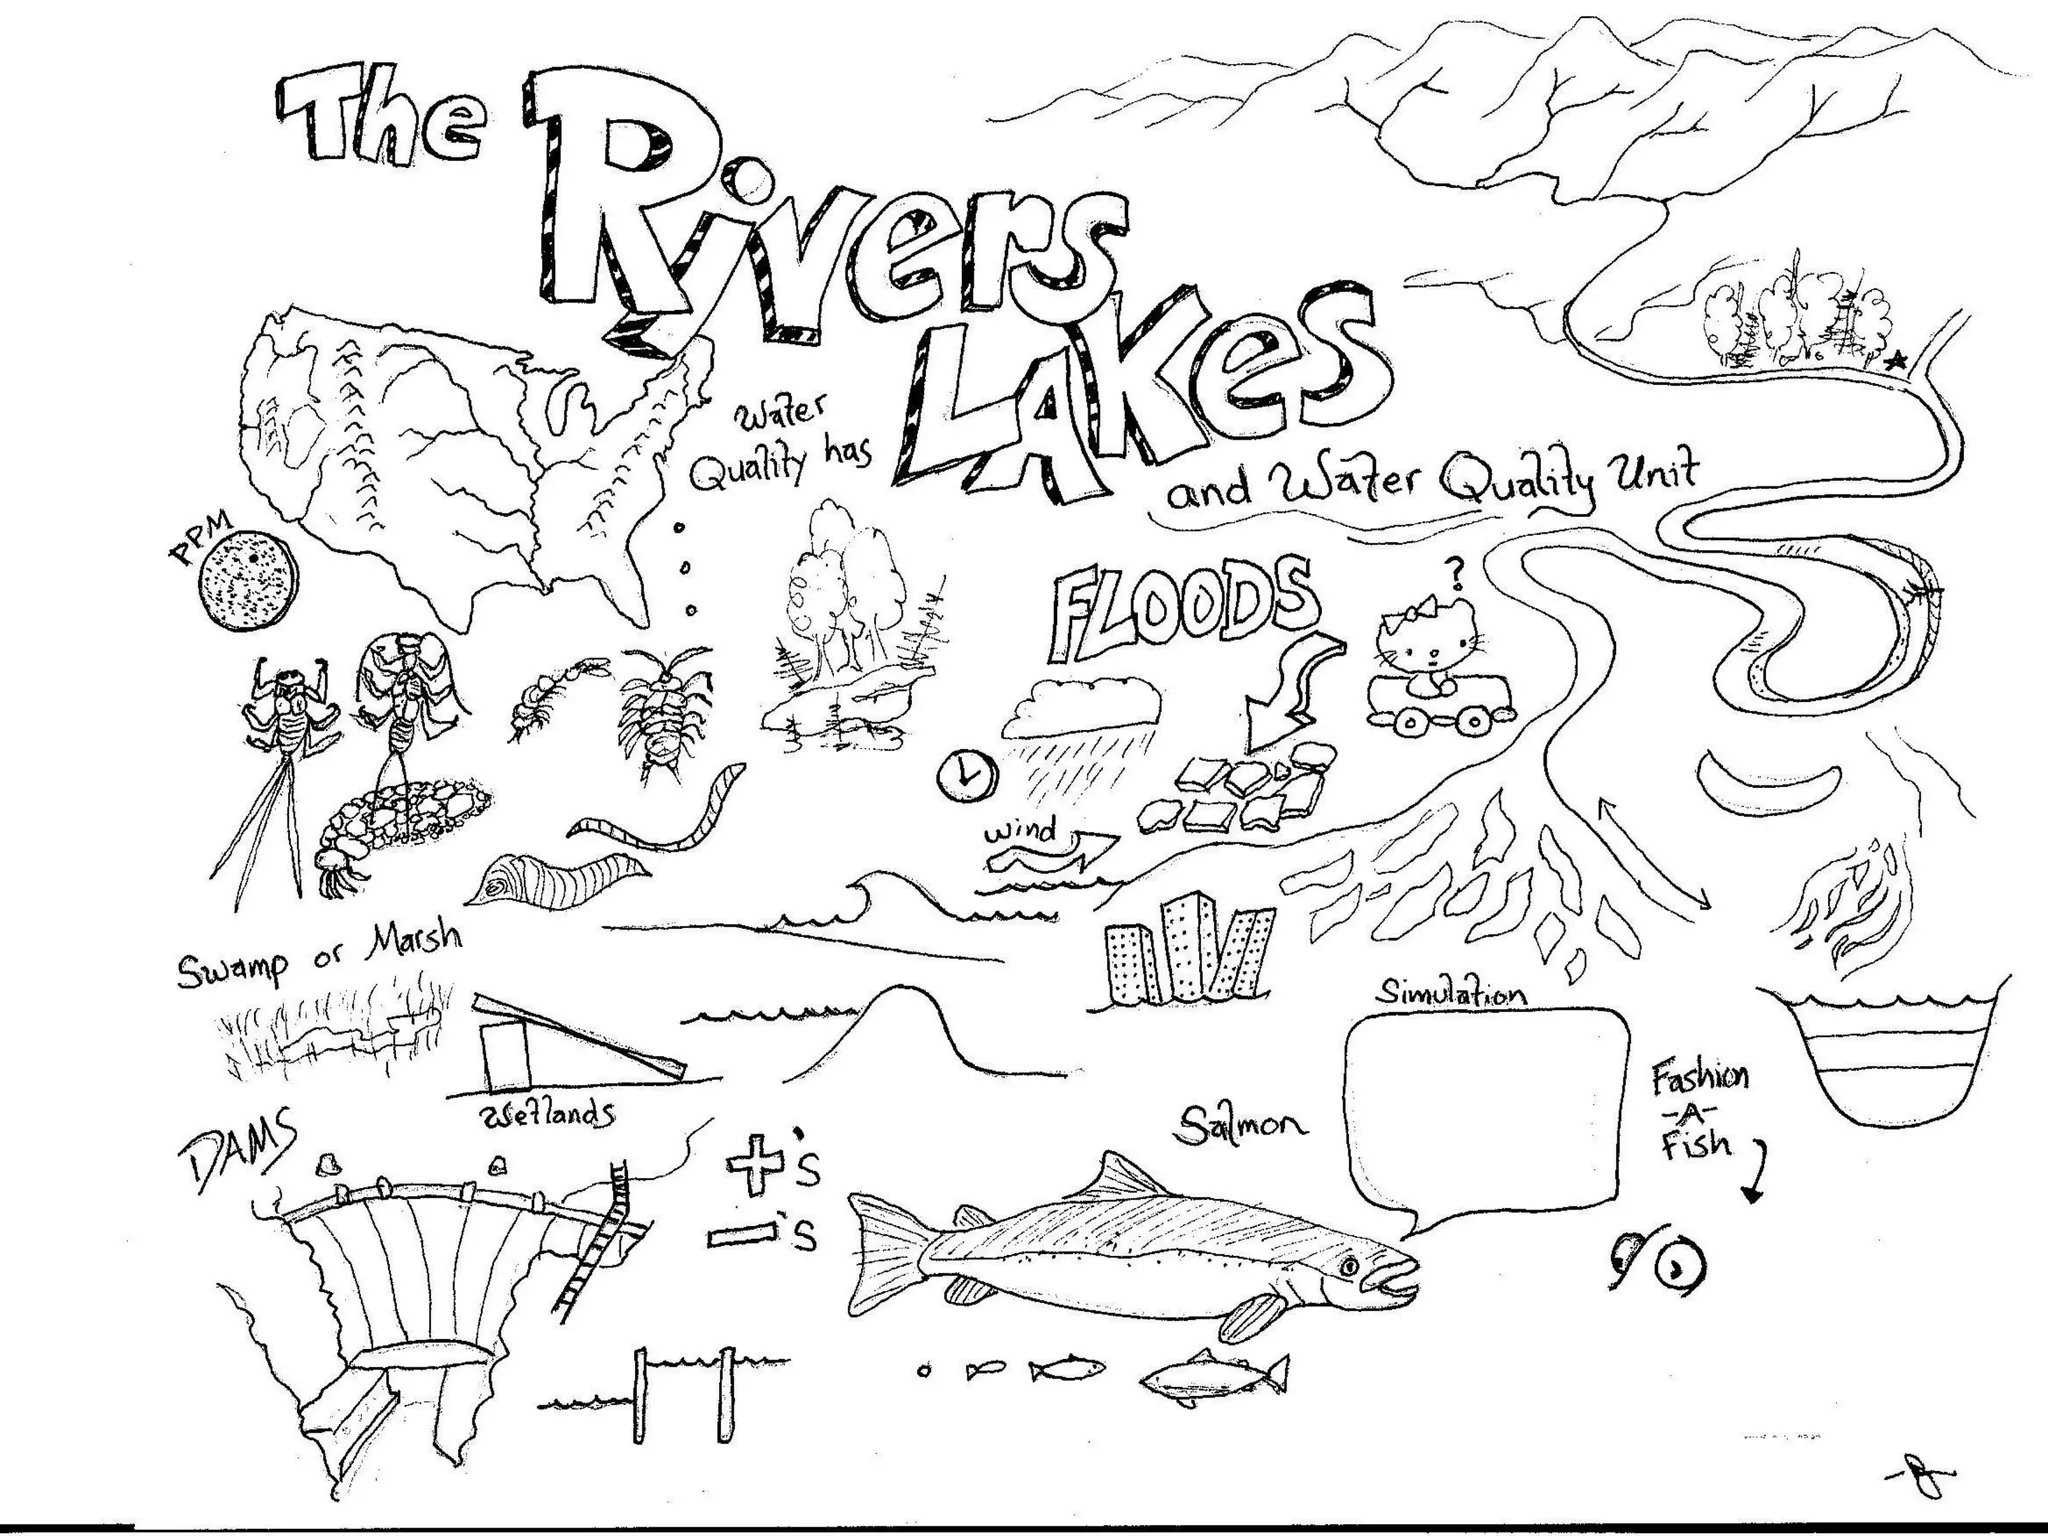 The
Rivers
LAKes
and Water Quality Unit
Water
Quality has
PPM
FLOODS
?
wind
Swamp or Marsh
Simulation
Wetlands
Fashion
-A-
Fish
Salmon
DAMS
+'s
-'s